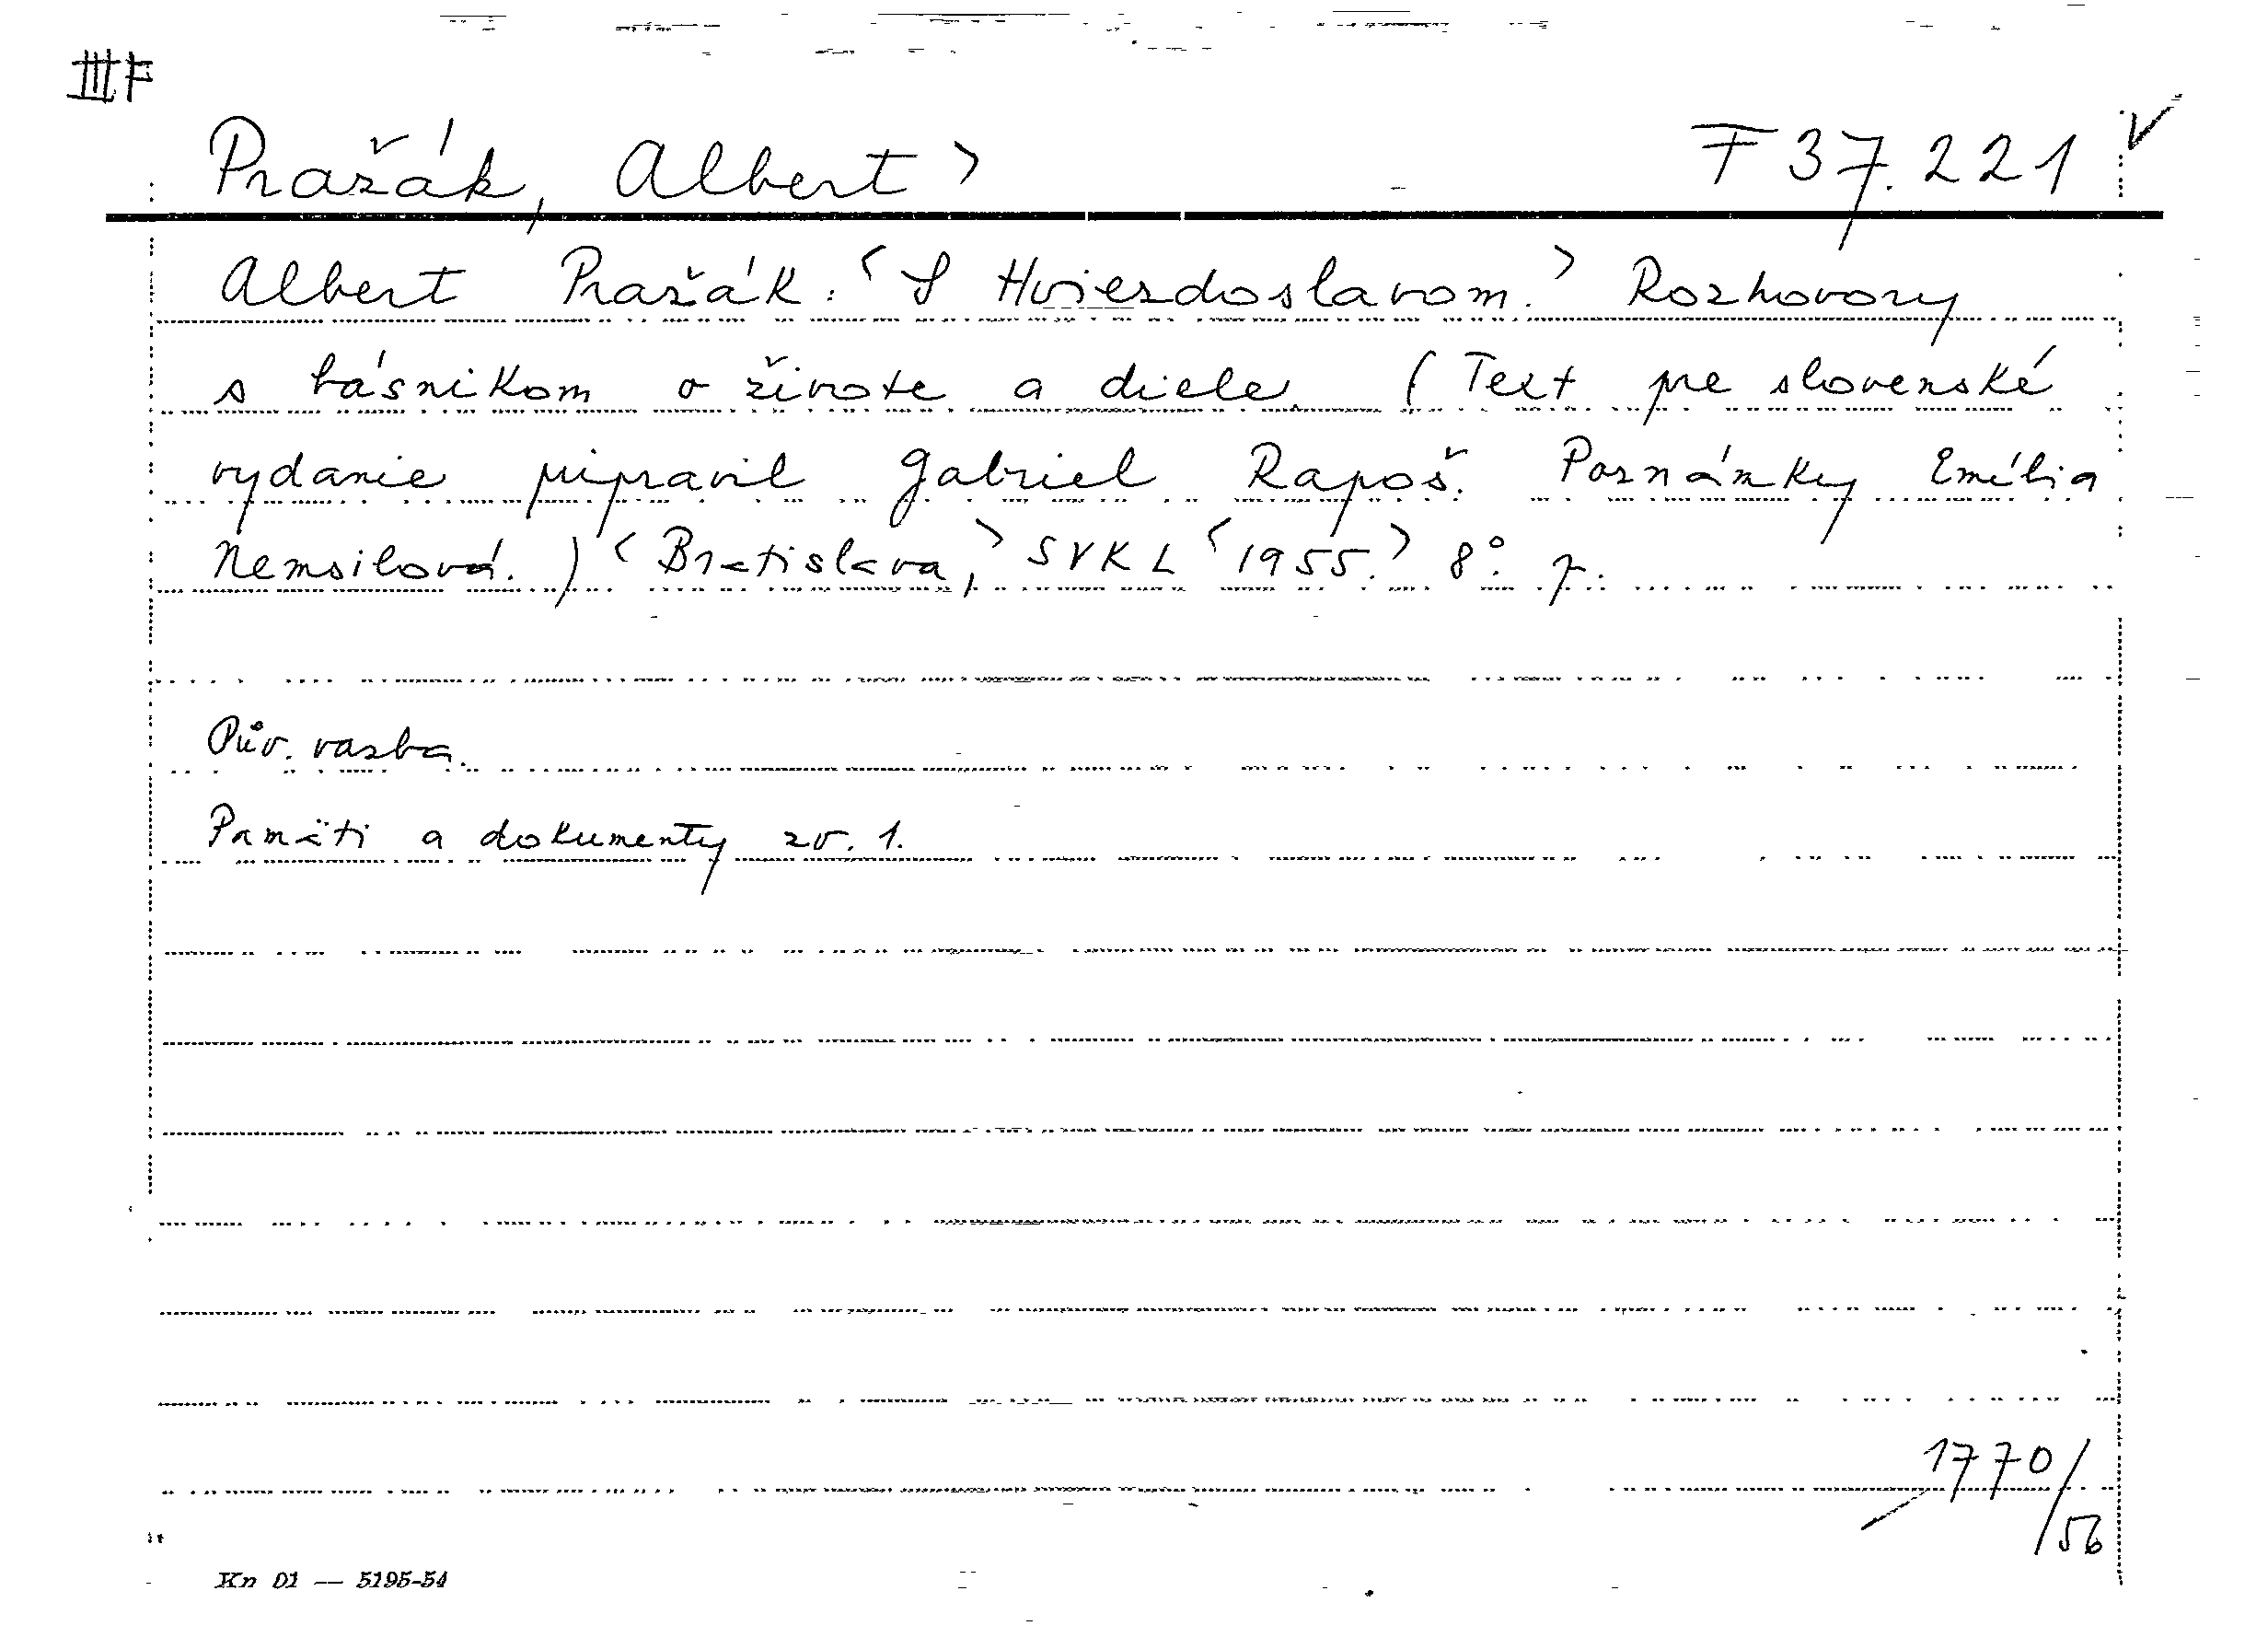 III F
Pražák, Albert > F 37.221 V
Albert Pražák: < S Hviezdoslavom. > Rozhovory
s básnikom o živote a diele. (Text pre slovenské
vydanie pripravil Gabriel Rapoš. Poznámky Emília
Nemsilová.) < Bratislava, > SVKL < 1955. > 8°. p.
Pův. vazba.
Pamäti a dokumenty zv. 1.
1770/56
Kn 01 — 5195-54